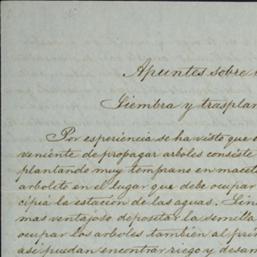 Apuntes sobre
Siembra y trasplan
Por esperiencia se ha visto que
veniente de propagar arboles consiste
plantando muy temprano en maceta
arbolito en el lugar que debe ocupar
cipia la estacion de las aguas.
mas ventajoso depositar la semilla
ocupar los arboles también al pri
asi puedan encontrar riego y desar